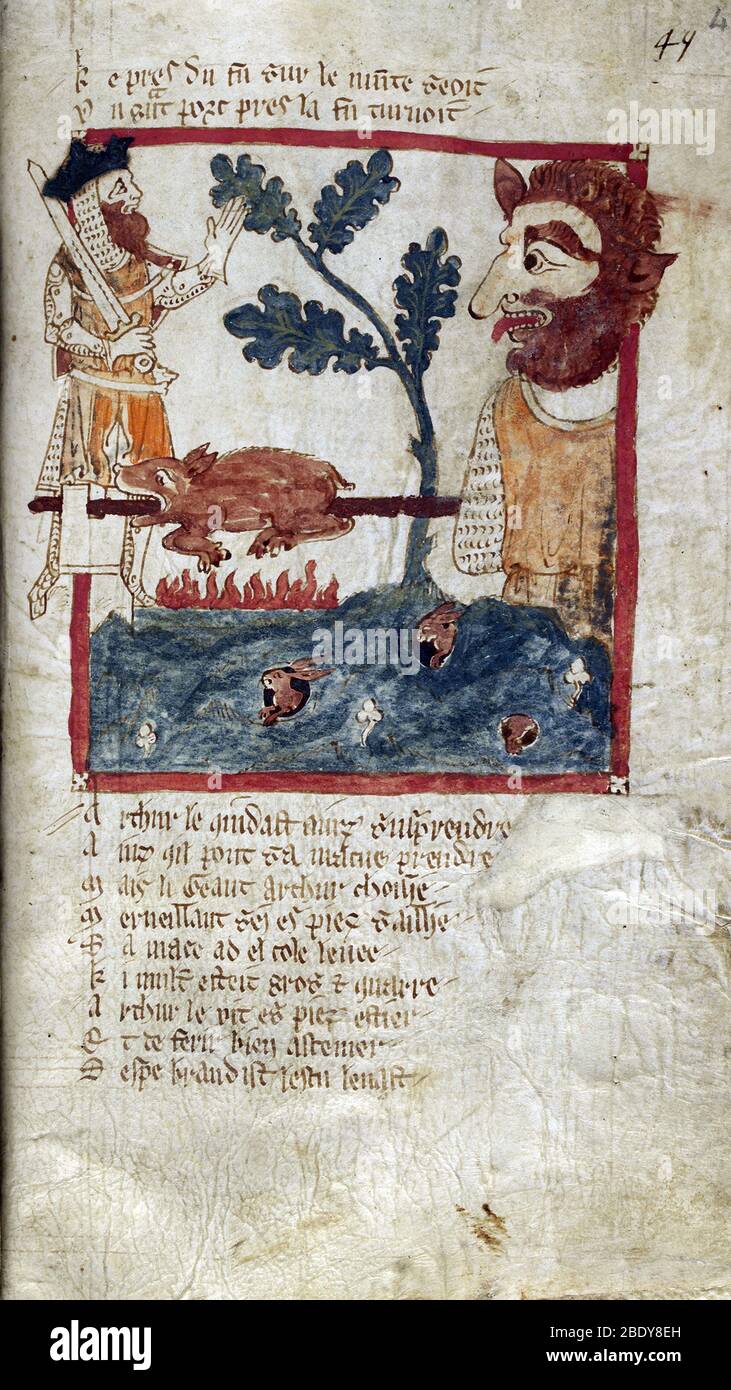 49 4
k e pres du fu sur le munte seoit
v n gñt porc pres la fu turnoit
A rthur le quidast ainz susprendre
A inz qil pout sa mace prendre
M ais li Geant arthur choisie
M erueillant sei es piez saillie
S a mace ad el cole leuee
k i mult esteit gros & quarre
A rthur le vit es piez ester
E t de ferir bien astemer
D espe brand ist lestu leuast
alamy
Image ID: 2BDY8EH
www.alamy.com